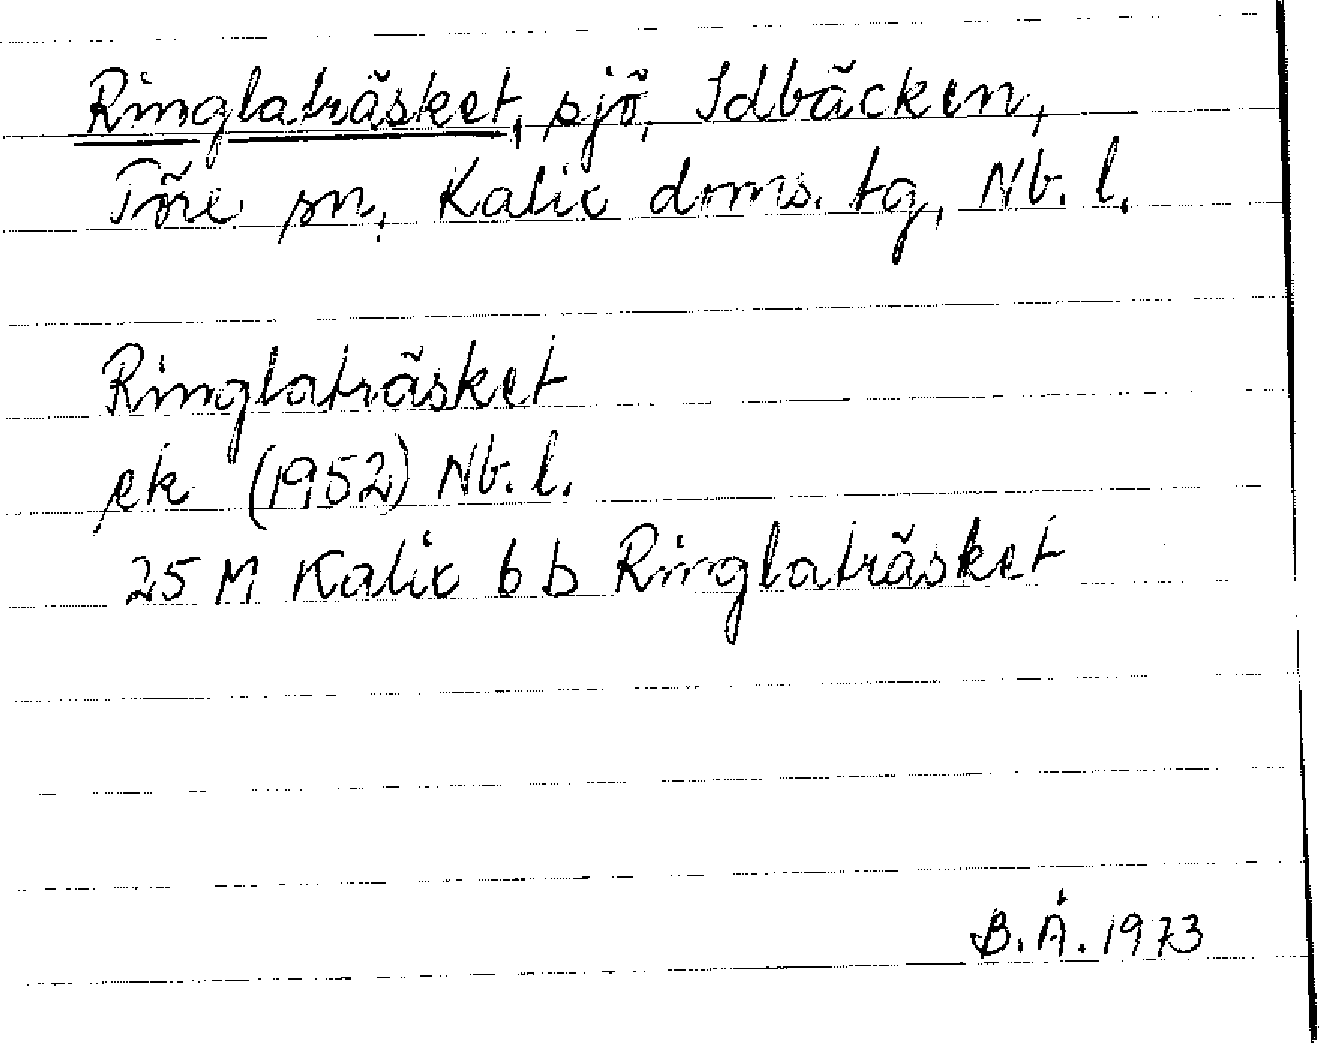 Ringlaträsket, sjö, Idbäcken,
Töre sn, Kalix doms. tg, Nb. l.
Ringlaträsket
ek (1952) Nb. l.
25 M Kalix 6 b Ringlaträsket
B. Å. 1973